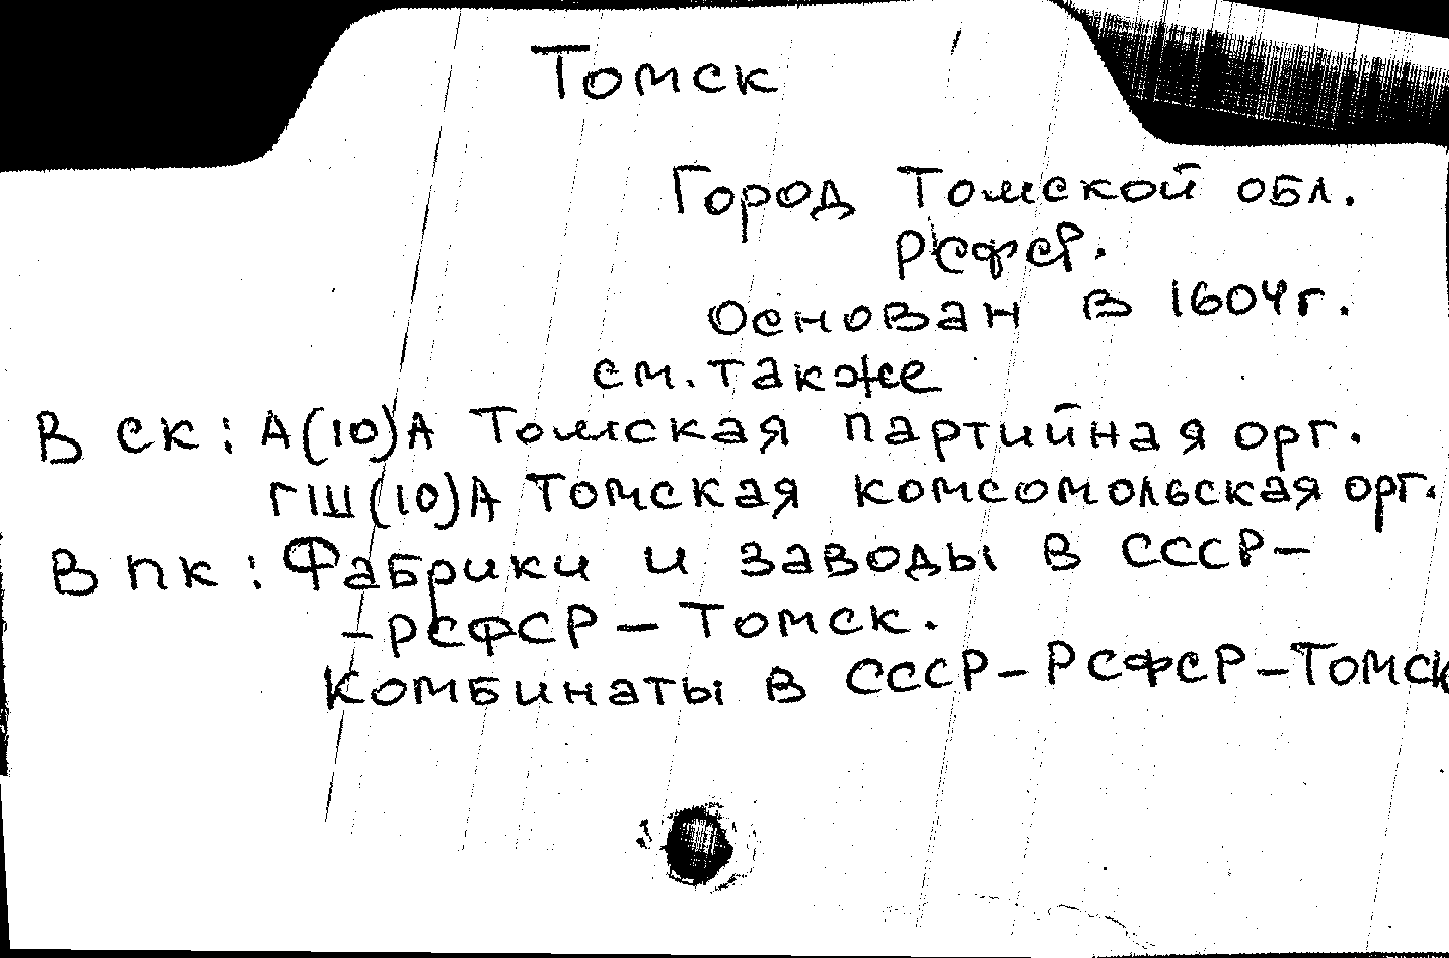 Томск
Город Томской обл.
РСФСР.
Основан в 1604г.
см. также
В СК: А(10)А Томская партийная орг.
ГШ(10)А Томская комсомольская орг.
В ПК: Фабрики и заводы в СССР-
-РСФСР-Томск.
Комбинаты в СССР-РСФСР-Томск